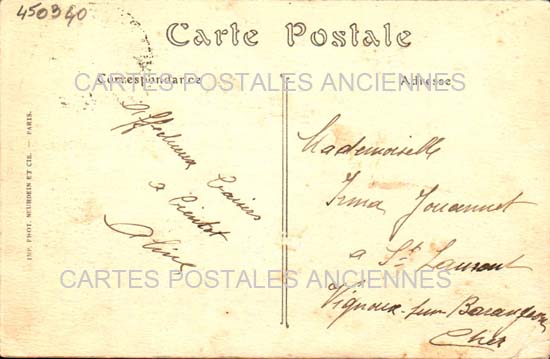 450340
Carte Postale
Correspondance
Adresse
CARTES POSTALES ANCIENNES
Affectueux
baisers
a bientot
Aline
Mademoiselle
Irma Jouannet
a St Laurent
Vignoux-sur-Barangeon
Cher
CARTES POSTALES ANCIENNES
IMP. PHOT. NEURDEIN ET CIE. — PARIS.